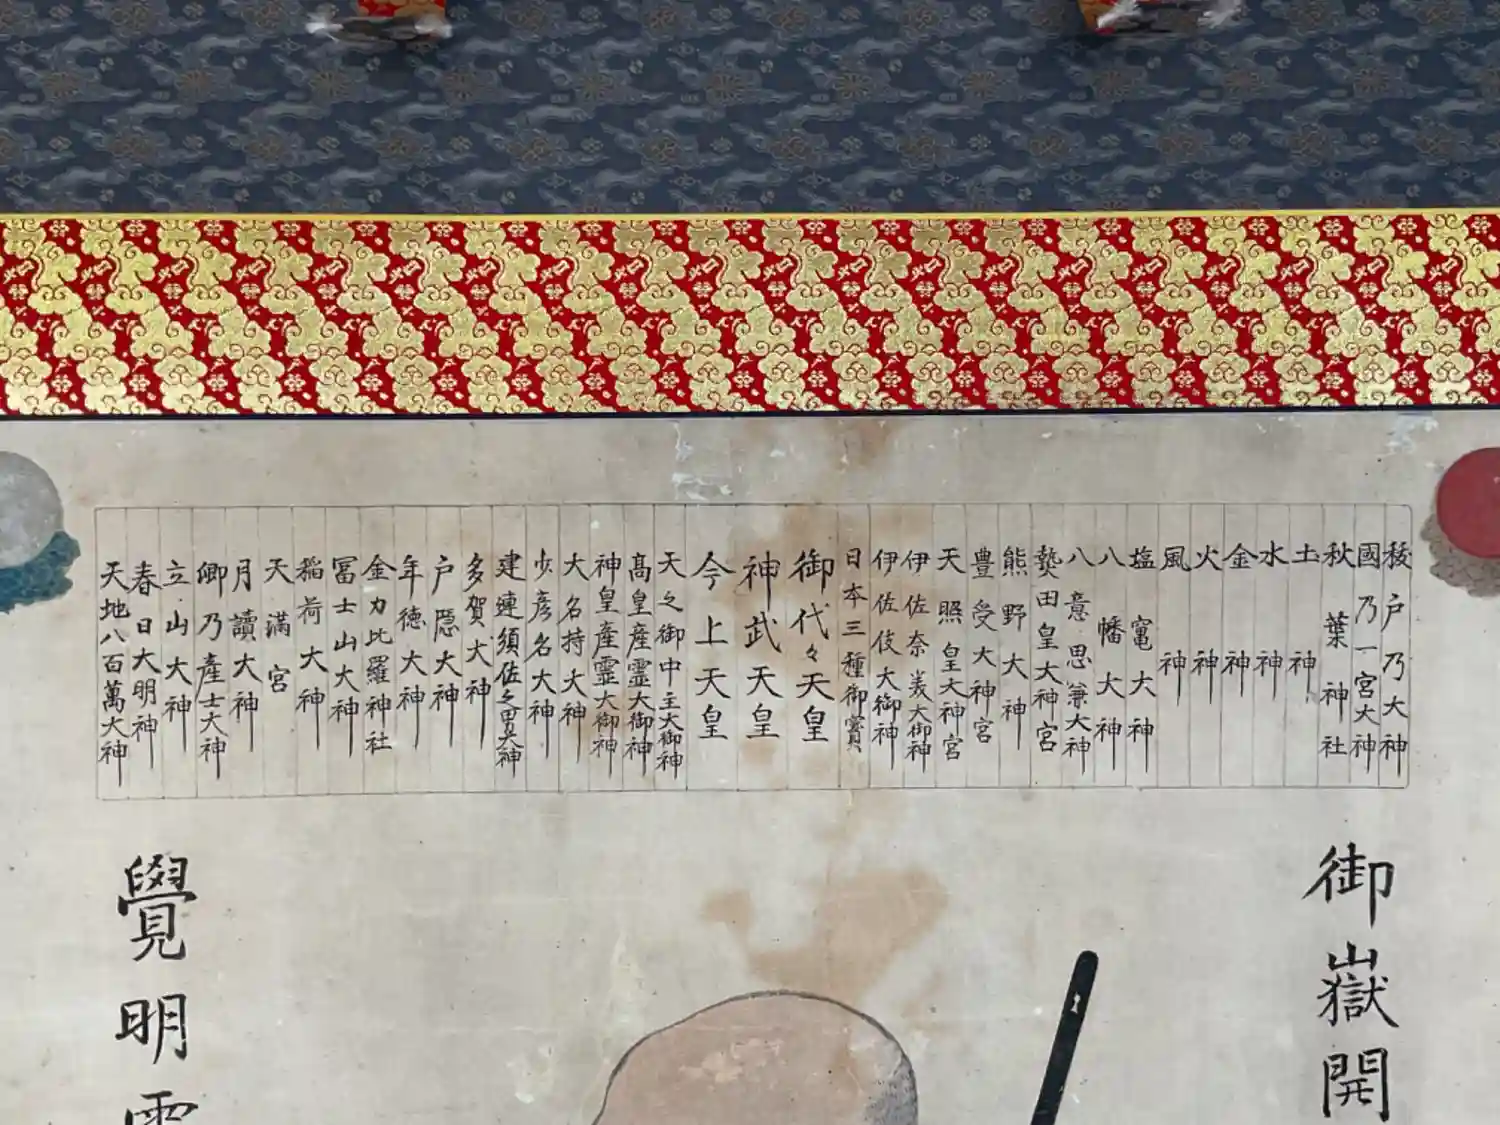 祓戸乃大神
國乃一宮大神
秋葉神社
土神
水神
金神
火神
風神
塩竃大神
八幡大神
八意思兼大神
熱田皇大神宮
熊野大神
豊受大神宮
天照皇大神宮
伊佐奈美大御神
伊佐伎大御神
日本三種御寳
御代々天皇
神武天皇
今上天皇
天之御中主大御神
髙皇産霊大御神
神皇産霊大御神
大名持大神
少彦名大神
建連須佐之男大神
多賀大神
戸隠大神
年徳大神
金力比羅神社
冨士山大神
稲荷大神
天満宮
月讀大神
郷乃産土大神
立山大神
春日大明神
天地八百萬大神
御嶽開
覺明霊